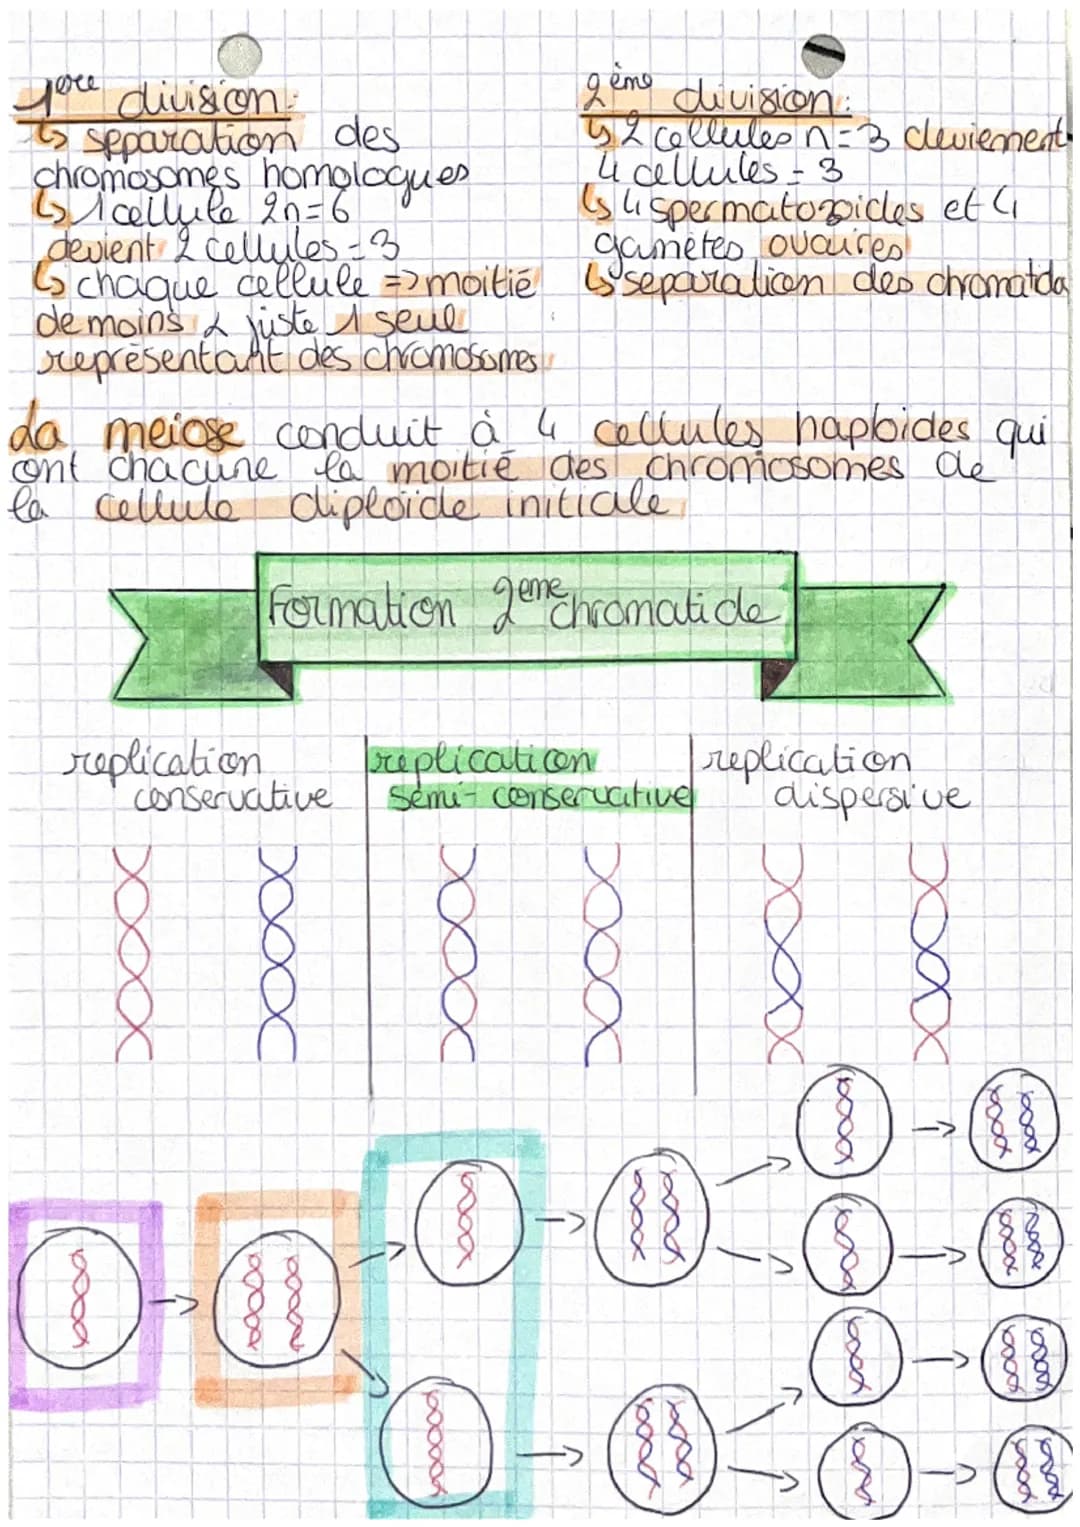 1ère division:
↳ séparation des
chromosomes homologues
↳ 1 cellule 2n=6
devient 2 cellules = 3
↳ chaque cellule => moitié
de moins & juste 1 seul
représentant des chromosomes
2ème division:
↳ 2 cellules n=3 deviennent
4 cellules = 3
↳ 4 spermatozoïdes et 4
gamètes ovaires
↳ séparation des chromatide
La meiose conduit à 4 cellules haploides qui
ont chacune la moitié des chromosomes de
la cellule diploïde initiale
Formation 2eme chromatide
replication
conservative
replication
semi-conservative
replication
dispersive